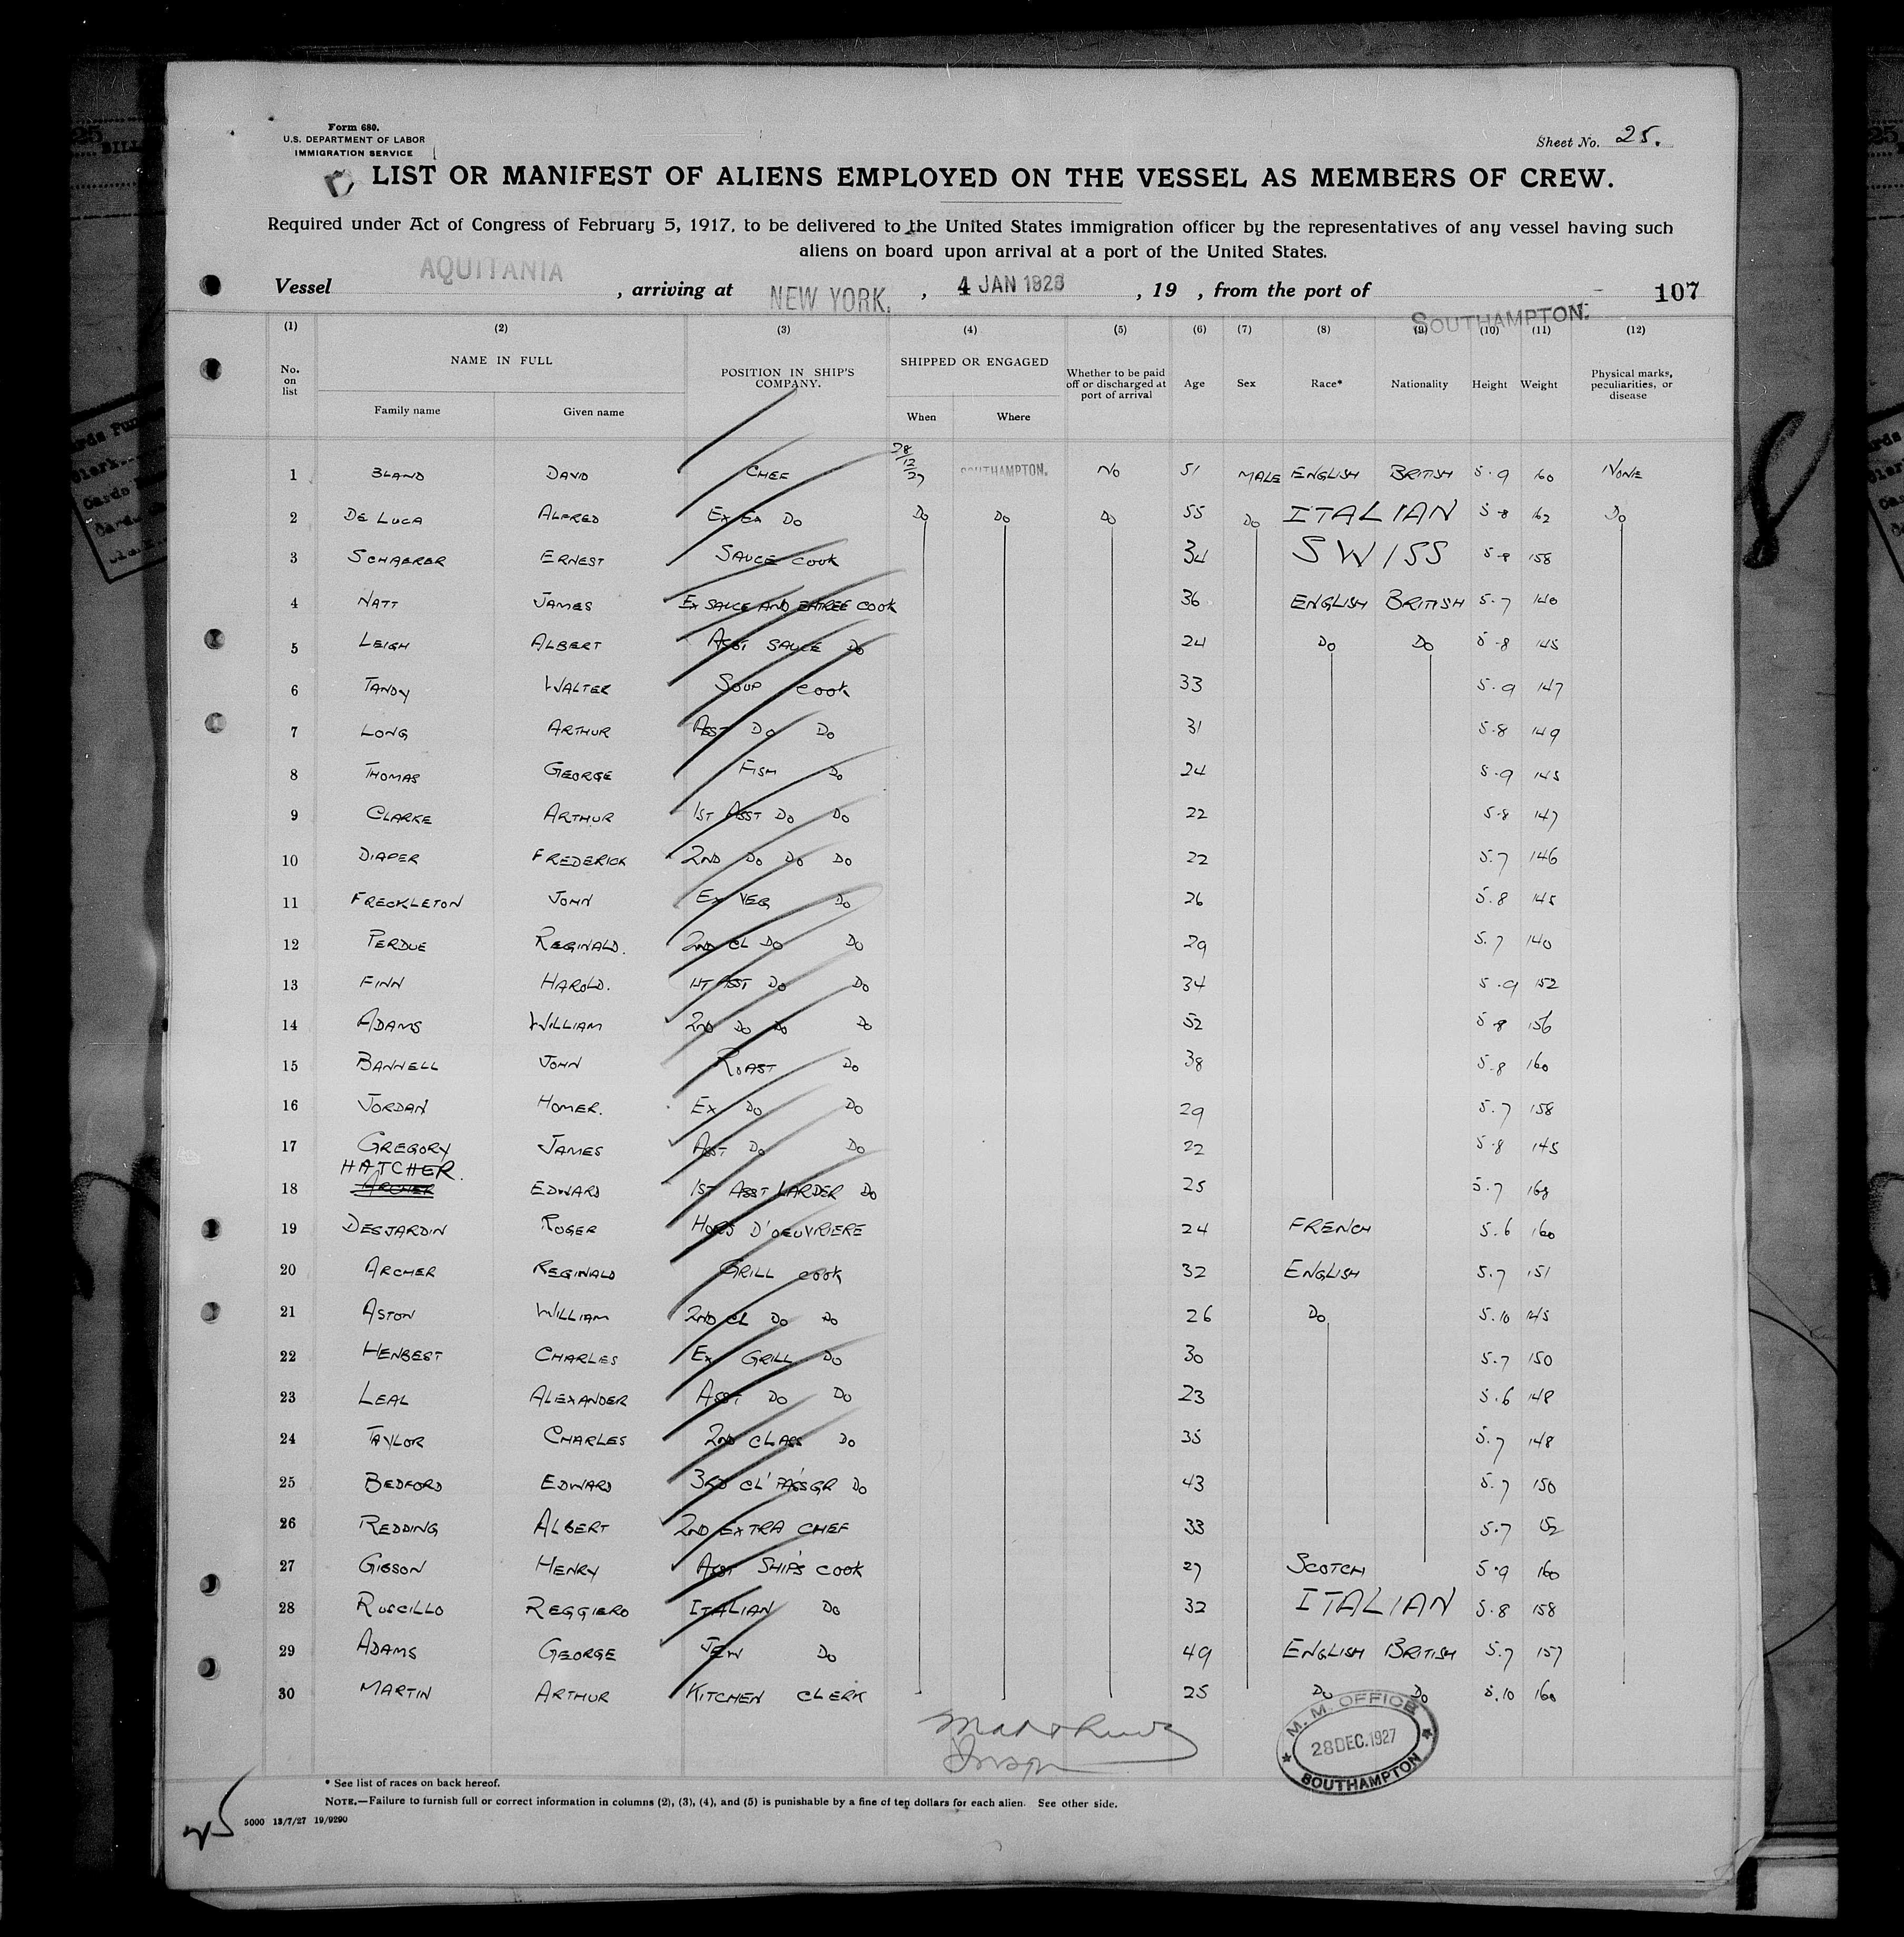 Form 680.
U.S. DEPARTMENT OF LABOR
IMMIGRATION SERVICE
Sheet No. 25.
LIST OR MANIFEST OF ALIENS EMPLOYED ON THE VESSEL AS MEMBERS OF CREW.
Required under Act of Congress of February 5, 1917, to be delivered to the United States immigration officer by the representatives of any vessel having such
aliens on board upon arrival at a port of the United States.
Vessel AQUITANIA, arriving at NEW YORK., 4 JAN 1928, 19 , from the port of SOUTHAMPTON. 107
(1) (2) (3) (4) (5) (6) (7) (8) (9) (10) (11) (12)
No. on list NAME IN FULL POSITION IN SHIP'S COMPANY. SHIPPED OR ENGAGED Whether to be paid off or discharged at port of arrival Age Sex Race* Nationality Height Weight Physical marks, peculiarities, or disease
Family name Given name When Where
1 BLAND DAVID CHEF 28/12/27 SOUTHAMPTON. NO 51 MALE ENGLISH BRITISH 5.9 160 NONE
2 DE LUCA ALFRED EX EX DO DO DO DO 55 DO ITALIAN 5-8 162 DO
3 SCHAERER ERNEST SAUCE COOK 34 SWISS 5-8 158
4 NATT JAMES EX SAUCE AND ENTREE COOK 36 ENGLISH BRITISH 5.7 140
5 LEIGH ALBERT ASST SAUCE DO 24 DO DO 5-8 145
6 TANDY WALTER SOUP COOK 33 5.9 147
7 LONG ARTHUR ASST DO DO 31 5-8 149
8 THOMAS GEORGE FISH DO 24 5.9 145
9 CLARKE ARTHUR 1ST ASST DO DO 22 5-8 147
10 DIAPER FREDERICK 2ND DO DO DO 22 5.7 146
11 FRECKLETON JOHN EX VEG DO 26 5.8 145
12 PERDUE REGINALD. 2ND CL DO DO 29 5.7 140
13 FINN HAROLD. 1ST ASST DO DO 34 5.9 152
14 ADAMS WILLIAM 2ND DO DO DO 52 5-8 156
15 BANNELL JOHN ROAST DO 38 5-8 160
16 JORDAN HOMER. EX DO DO 29 5.7 158
17 GREGORY JAMES ASST DO DO 22 5-8 145
HATCHER.
18 ARCHER EDWARD 1ST ASST LARDER DO 25 5.7 168
19 DESJARDIN ROGER HORS D'OEUVRIERE 24 FRENCH 5.6 160
20 ARCHER REGINALD GRILL COOK 32 ENGLISH 5.7 151
21 ASTON WILLIAM 2ND CL DO DO 26 DO 5.10 145
22 HENBEST CHARLES EX GRILL DO 30 5.7 150
23 LEAL ALEXANDER ASST DO DO 23 5.6 148
24 TAYLOR CHARLES 2ND CLASS DO 35 5.7 148
25 BEDFORD EDWARD 3RD CL' PASSGR DO 43 5.7 150
26 REDDING ALBERT 2ND EXTRA CHEF 33 5.7 152
27 GIBSON HENRY ASST SHIP'S COOK 27 SCOTCH 5.9 160
28 RUSCILLO REGGIERO ITALIAN DO 32 ITALIAN 5.8 158
29 ADAMS GEORGE JEW DO 49 ENGLISH BRITISH 5.7 157
30 MARTIN ARTHUR KITCHEN CLERK 25 DO DO 5.10 160
M. M. OFFICE
28 DEC. 1927
SOUTHAMPTON
* See list of races on back hereof.
NOTE.—Failure to furnish full or correct information in columns (2), (3), (4), and (5) is punishable by a fine of ten dollars for each alien. See other side.
5000 13/7/27 19/9290